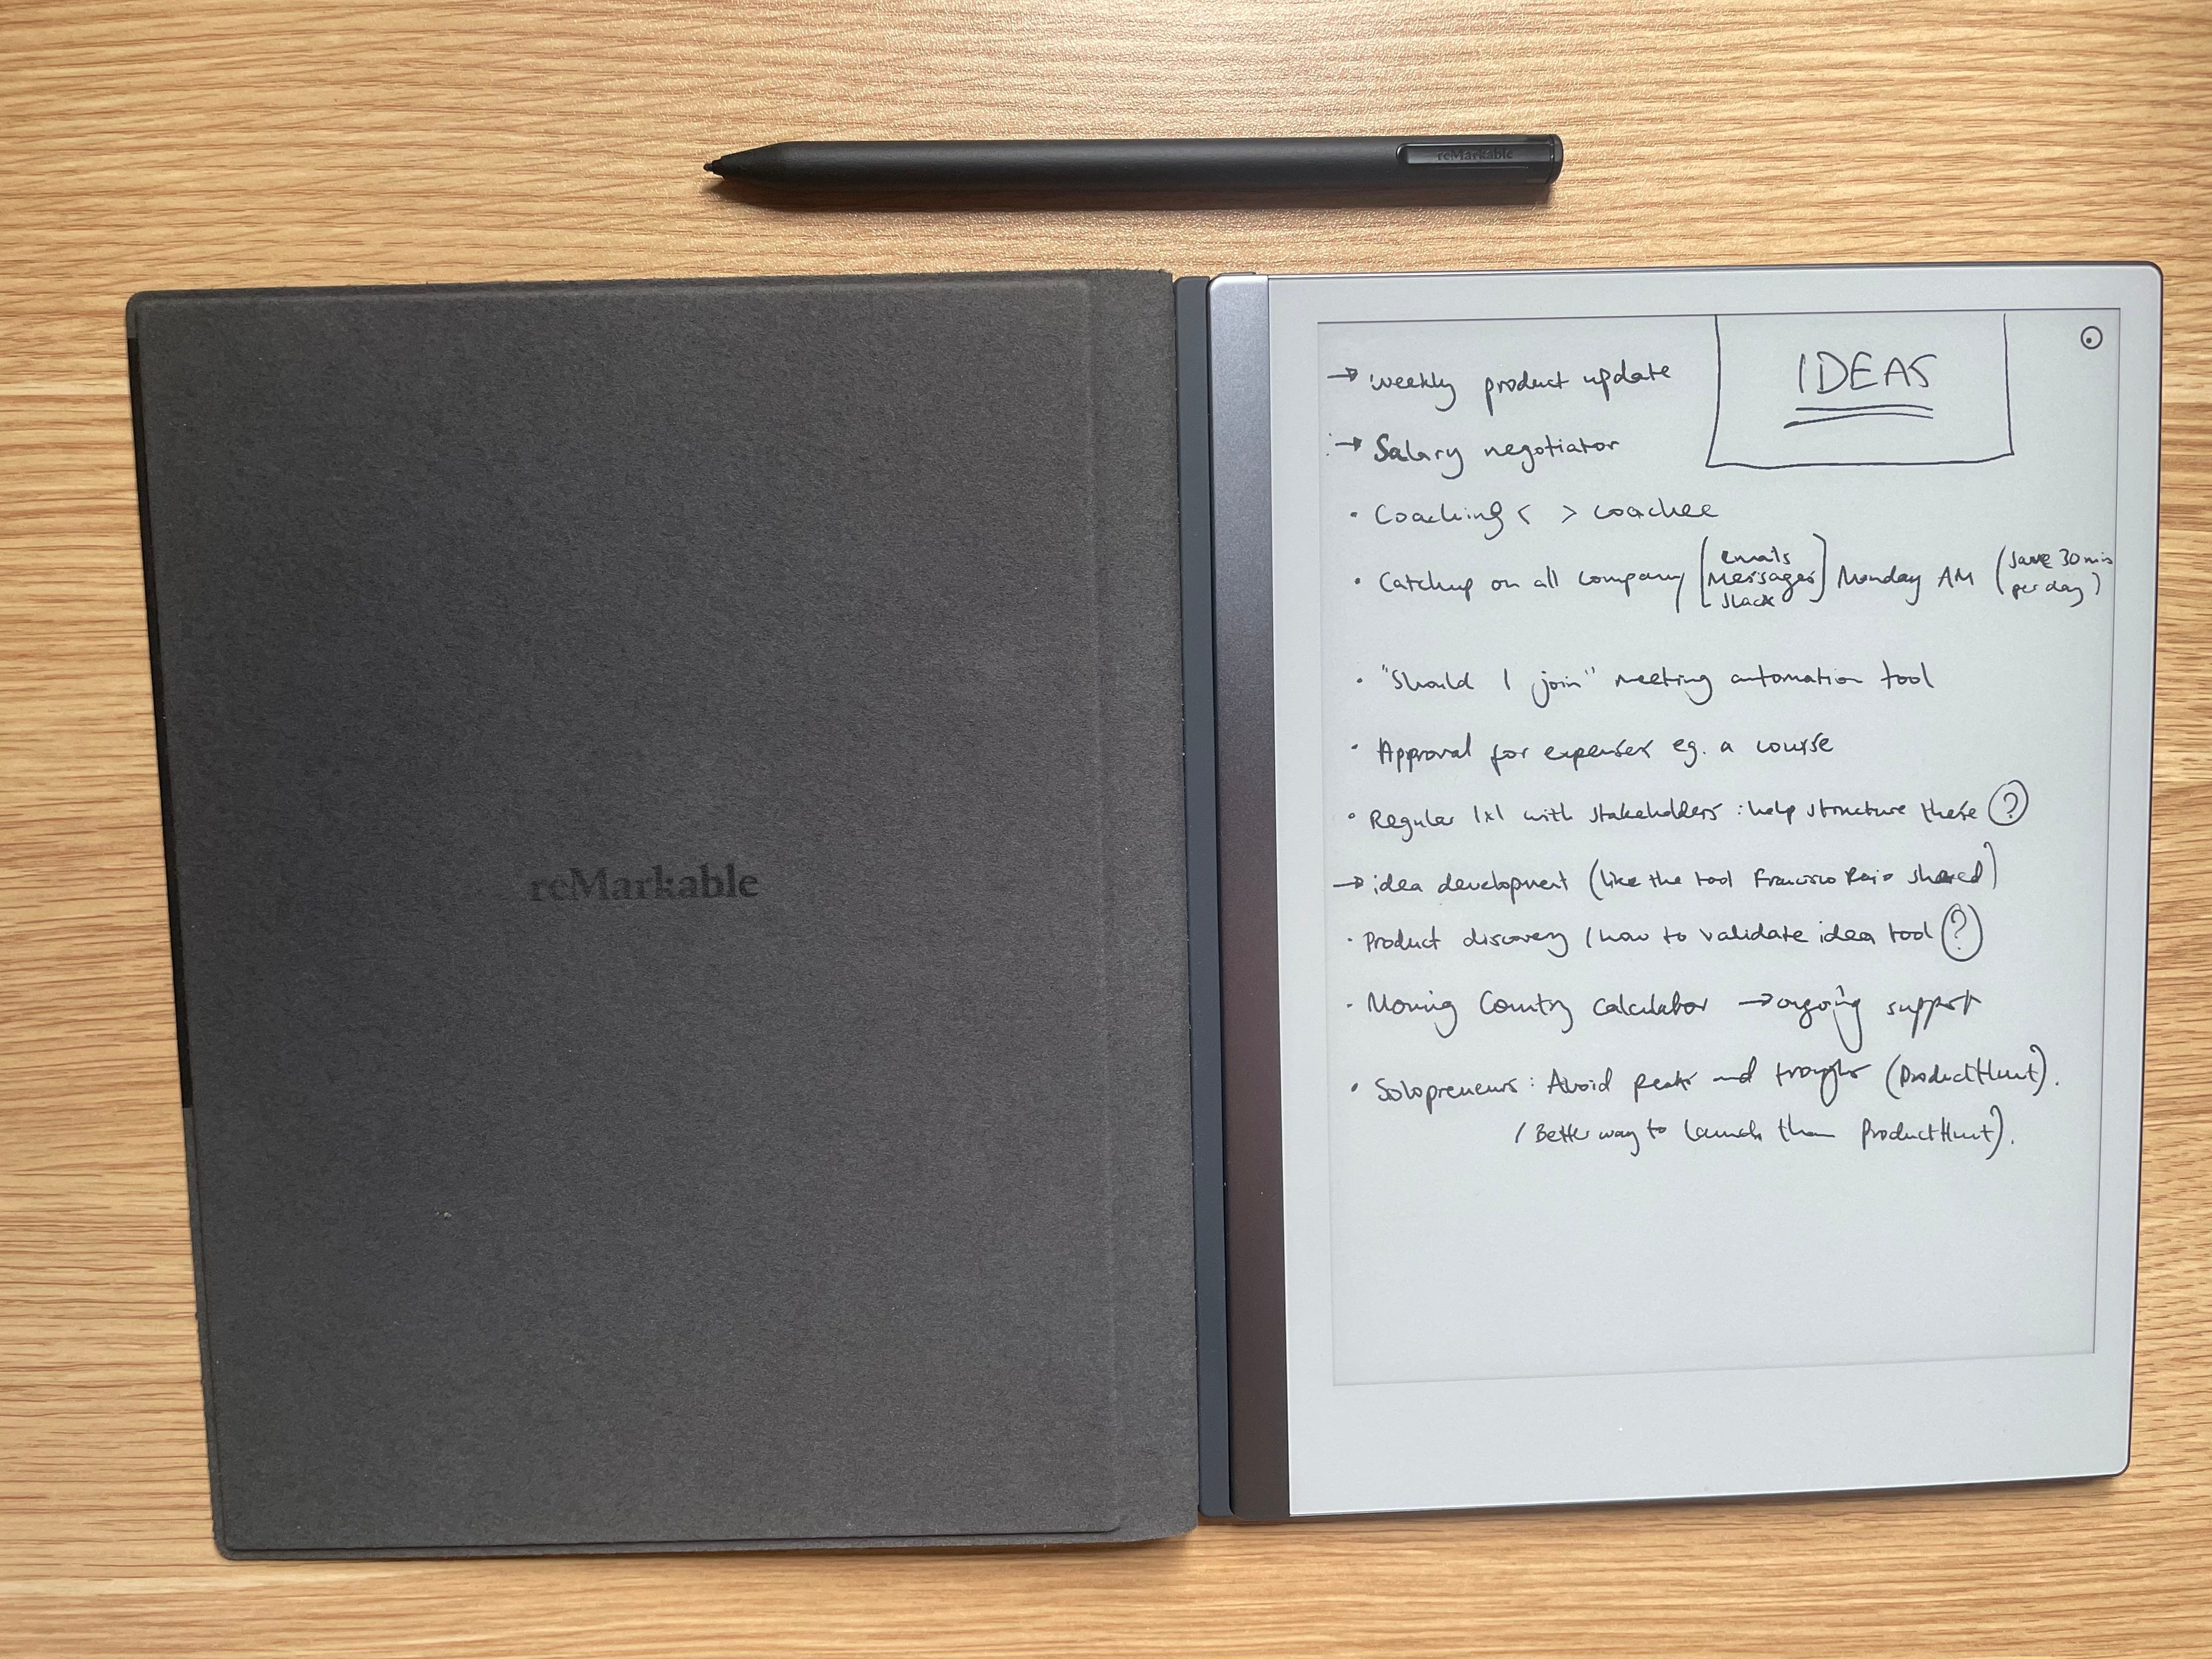 reMarkable
reMarkable
IDEAS
→ weekly product update
→ Salary negotiator
• Coaching < > coachee
• Catchup on all company [emails
messages
slack] Monday AM (save 30 min
per day)
• "Should I join" meeting automation tool
• Approval for expenses eg. a course
• Regular 1x1 with stakeholders : help structure these ?
→ idea development (like the tool Francisco shared)
• Product discovery / how to validate idea tool ?
• Moving Country calculator → ongoing support
• Solopreneurs : Avoid peaks and troughs (ProductHunt).
/ Better way to launch than ProductHunt).